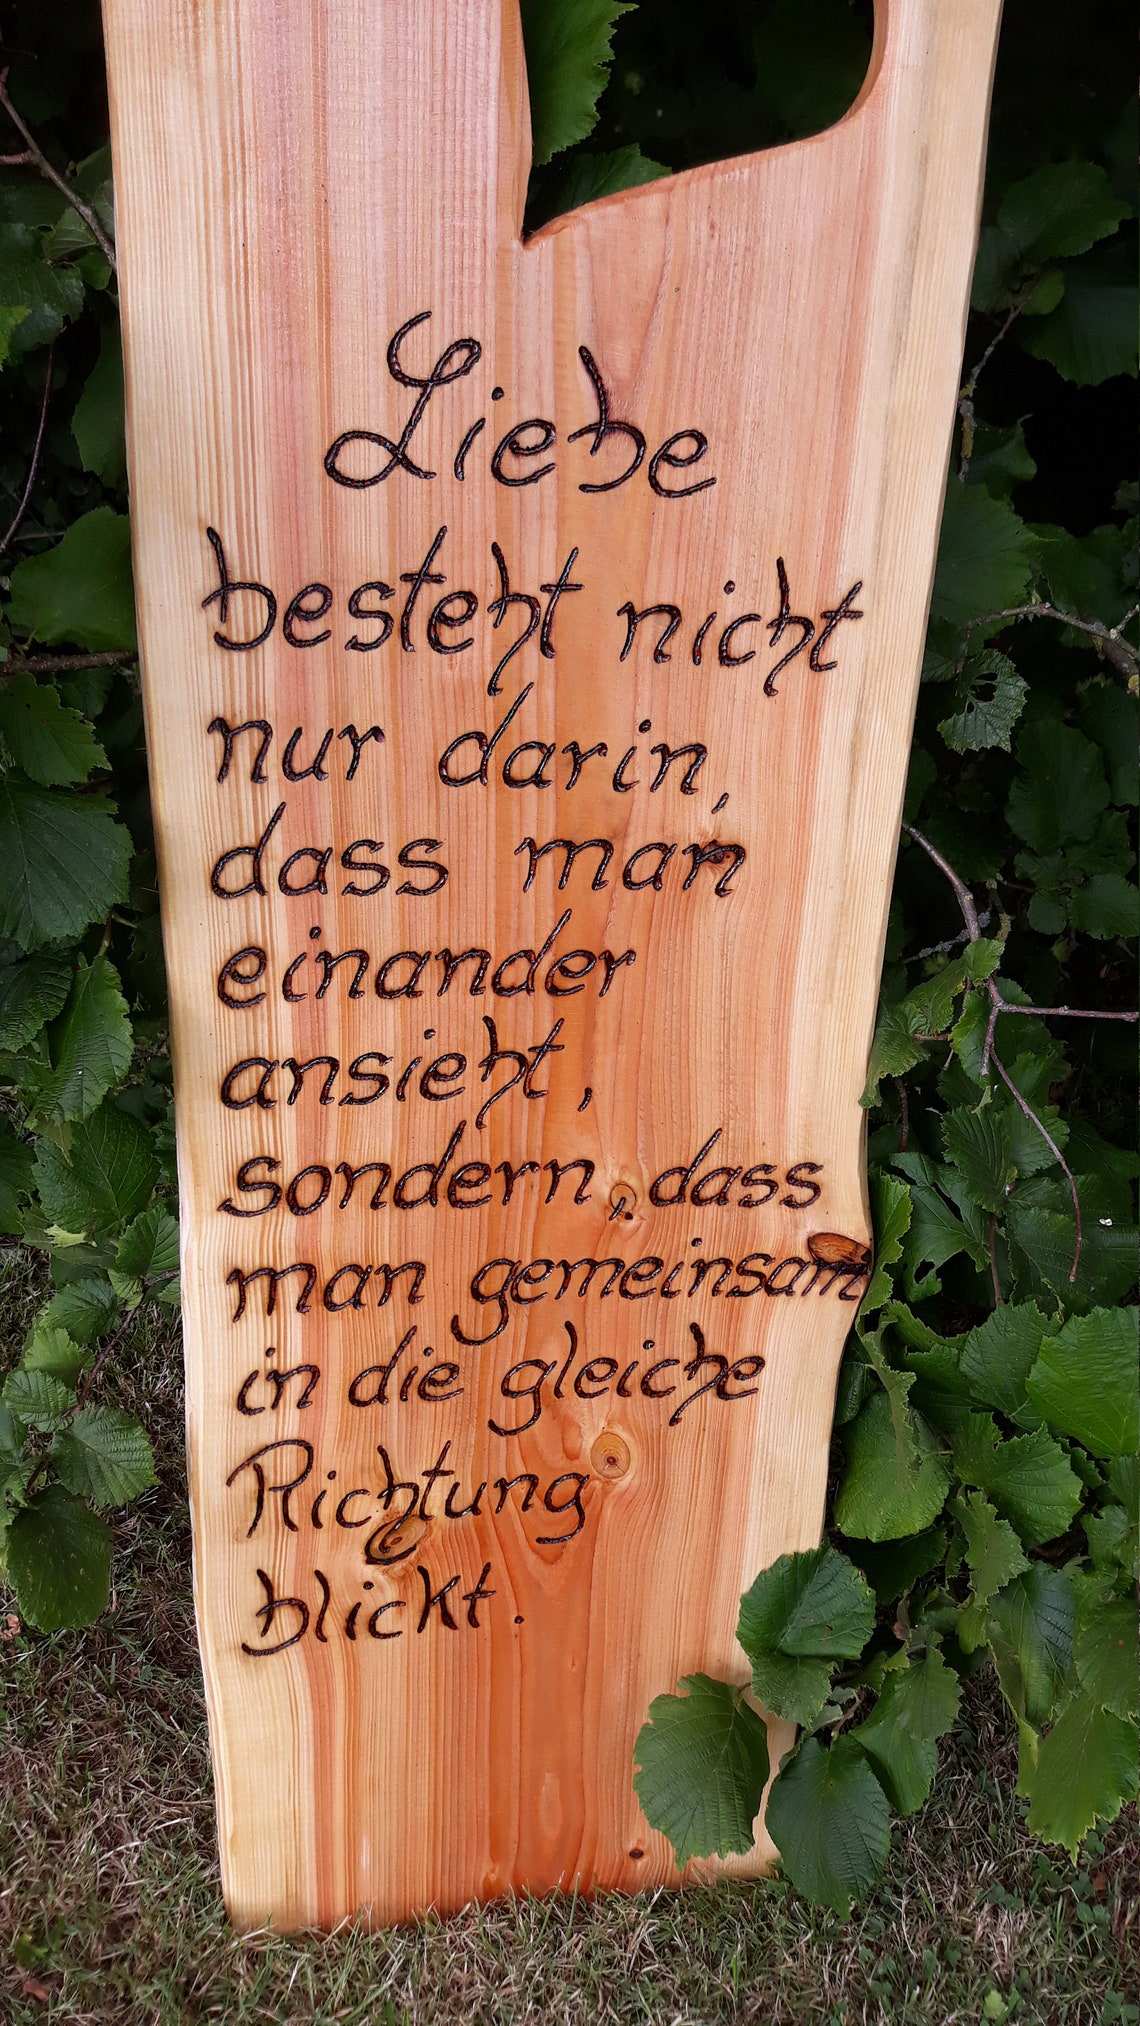 Liebe
besteht nicht
nur darin,
dass man
einander
ansieht,
sondern, dass
man gemeinsam
in die gleiche
Richtung
blickt.